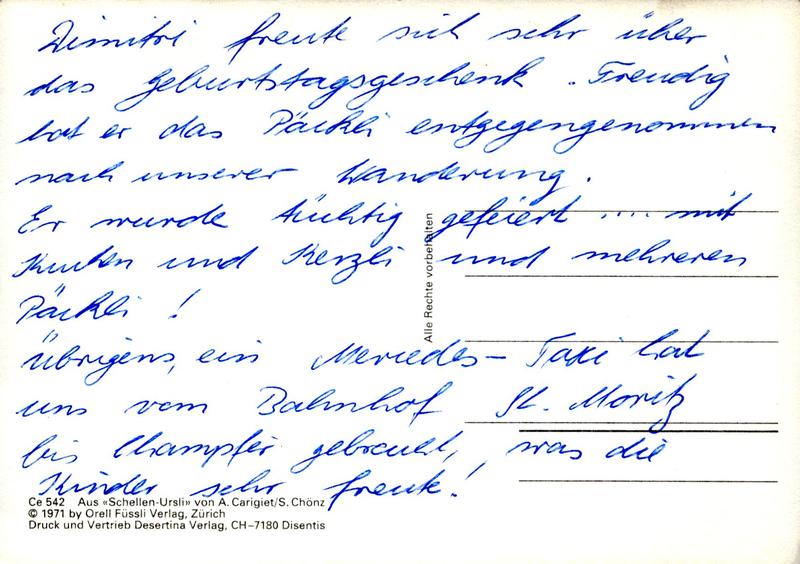 Dimitri freute sich sehr über
das Geburtstagsgeschenk. Freudig
hat er das Päckli entgegengenommen
nach unserer Wanderung.
Er wurde tüchtig gefeiert .... mit
Kuchen und Kerzli und mehreren
Päckli !
Übrigens, ein Mercedes-Taxi hat
uns vom Bahnhof St. Moritz
bis Champfèr gebracht, was die
Kinder sehr freute!
Alle Rechte vorbehalten
Ce 542 Aus «Schellen-Ursli» von A. Carigiet/S. Chönz
© 1971 by Orell Füssli Verlag, Zürich
Druck und Vertrieb Desertina Verlag, CH-7180 Disentis